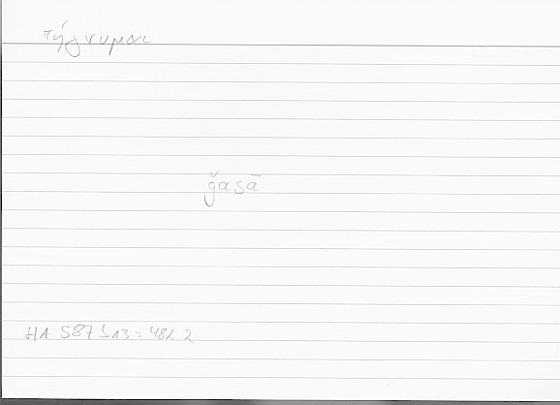 πήγνυμαι
ǧasā
HA 587 b13 = 482 2